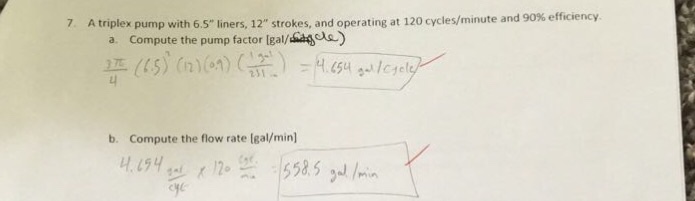 7. A triplex pump with 6.5" liners, 12" strokes, and operating at 120 cycles/minute and 90% efficiency.
a. Compute the pump factor [gal/cycle)
3π/4 (6.5)² (12) (0.9) (1 gal/231 in) = 4.654 gal/cycle
b. Compute the flow rate [gal/min]
4.654 gal/cyc x 120 cyc/min = 558.5 gal/min